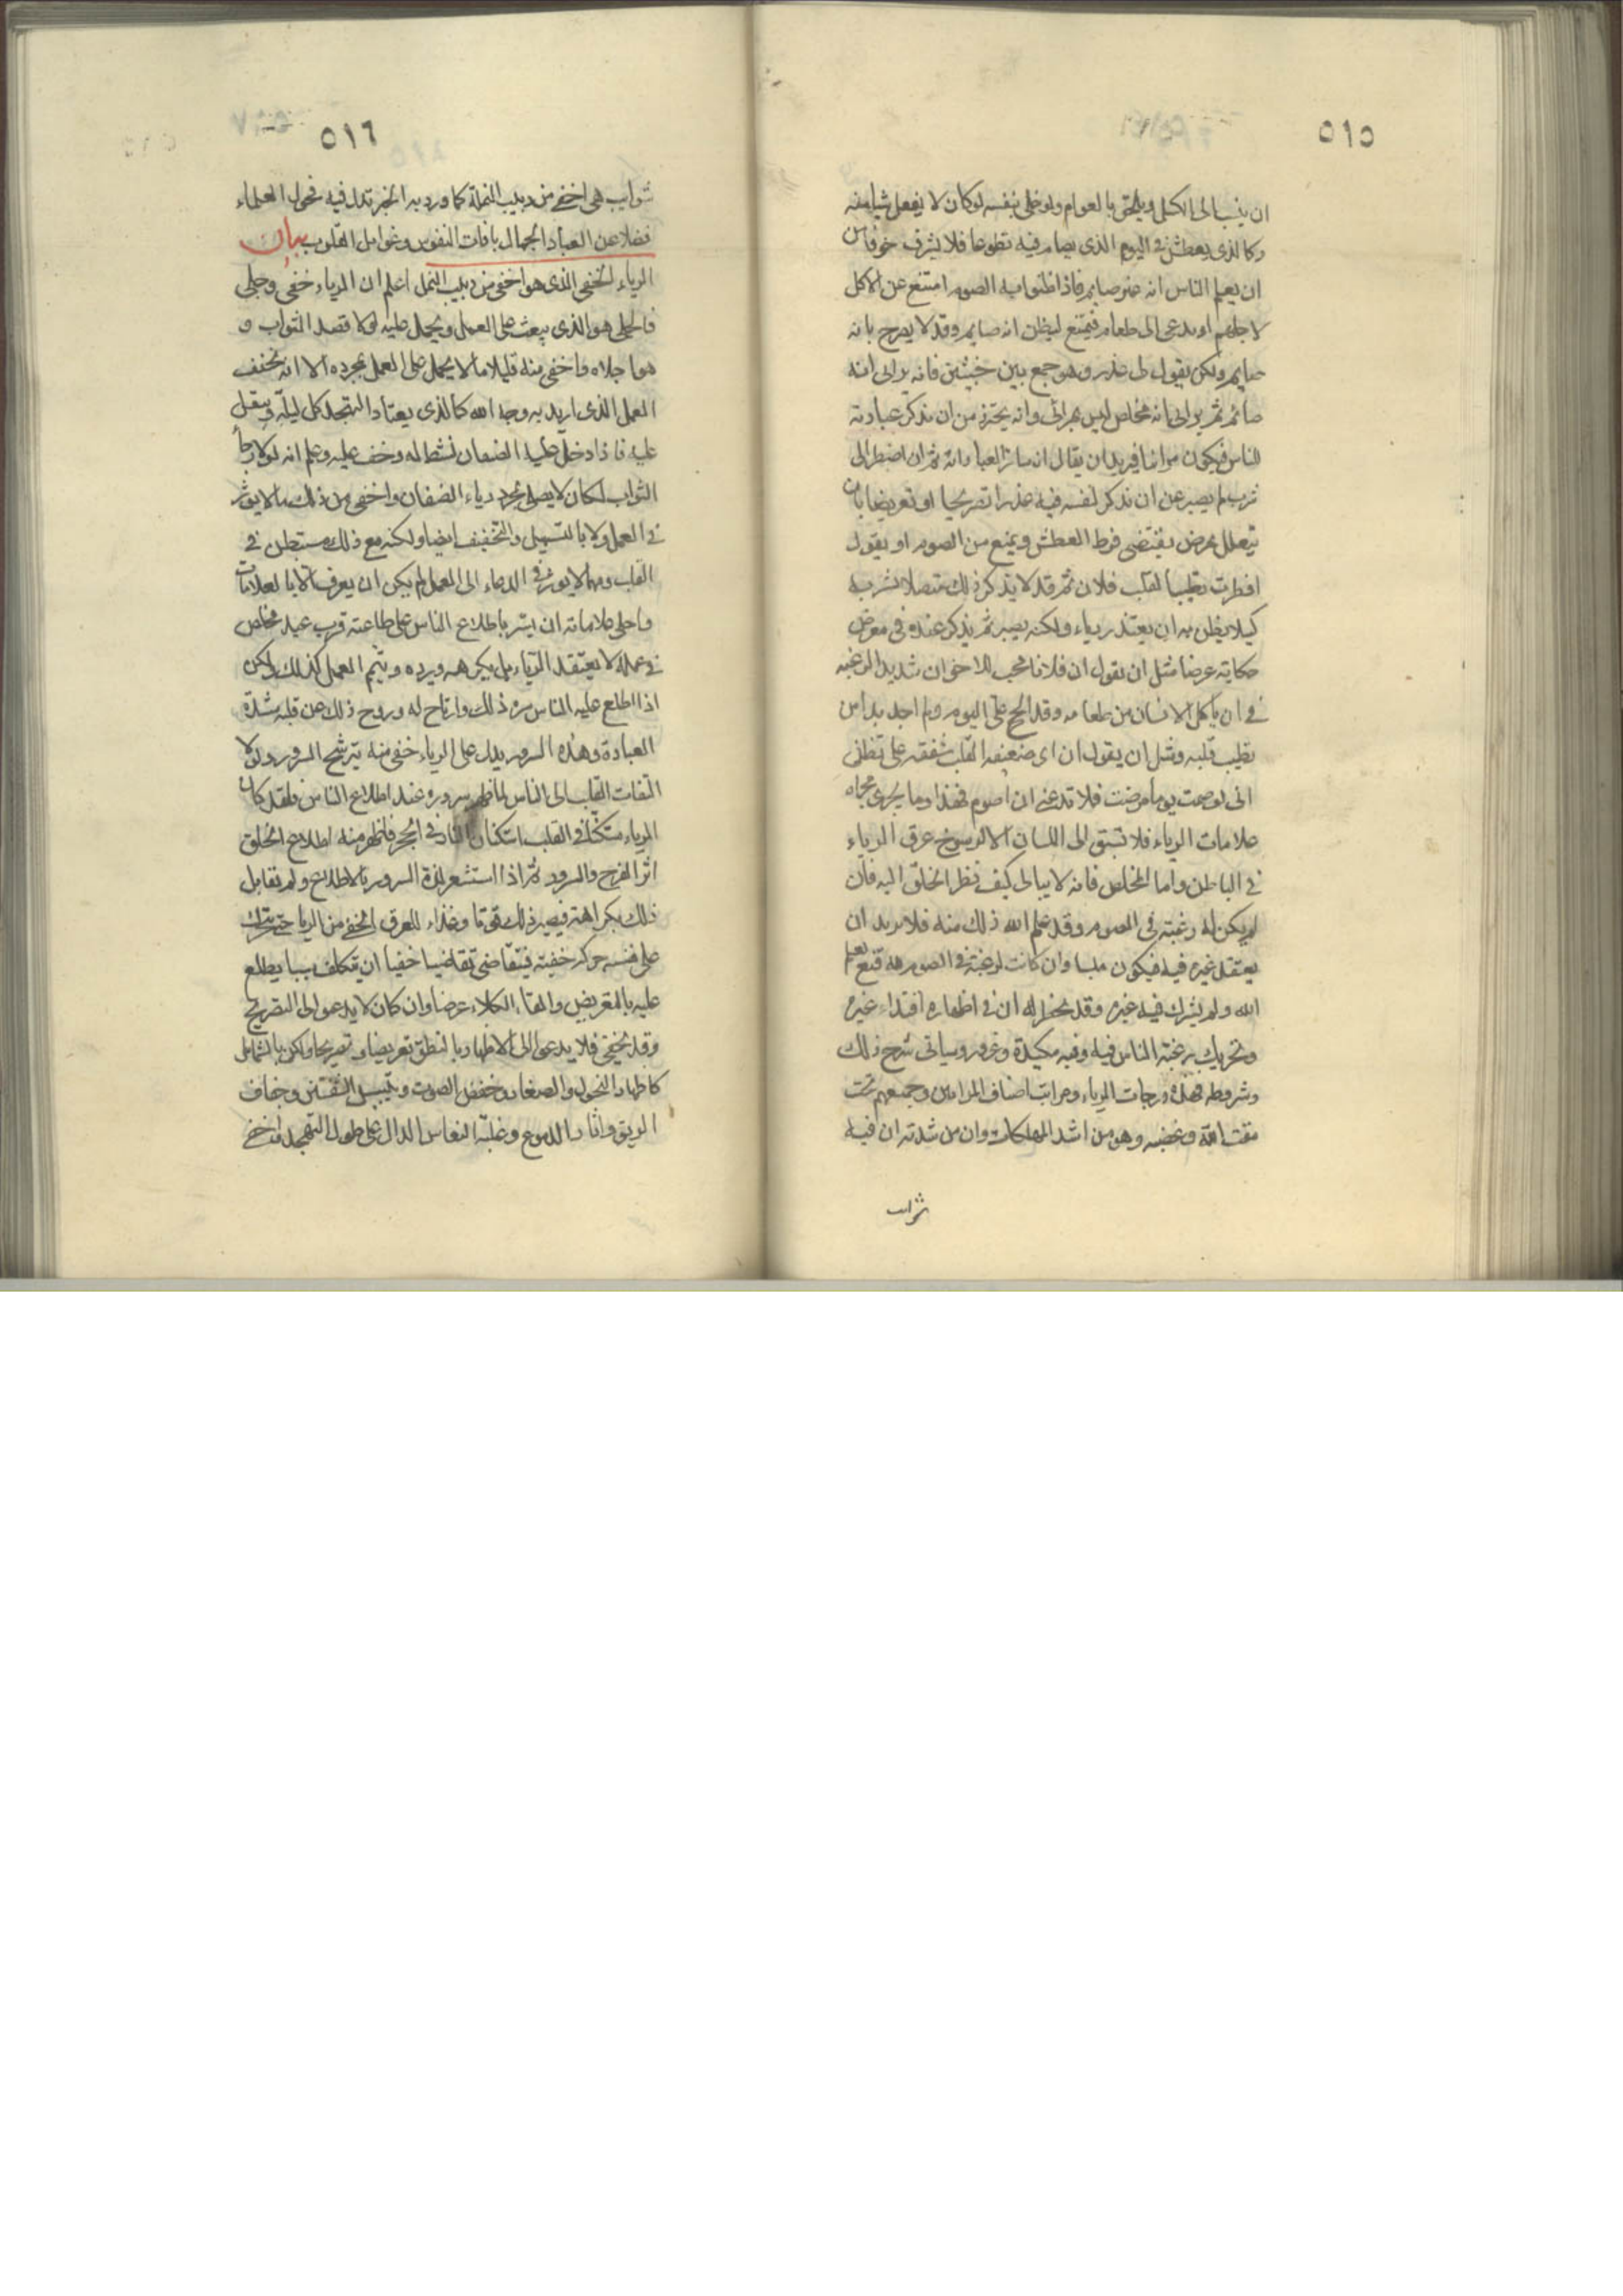 ٥١٥
ان ينسب الى الكسل ويلحق بالعوام ولو خلى بنفسه لوكان لا يفعل شيا منه
وكالذى يعطش فى اليوم الذى يصام فيه تطوعا فلا يشرف خوفا من
ان يعلم الناس انه غير صايم فاذا ظنوا به الصوم امتنع عن الاكل
لاجلهم او يدعى الى طعام فيمتنع ليظن انه صايم وقد لا يصرح بانه
صايم ولكن يقول لى عذر وهو جمع بين خبيثين فانه يرائى انه
صائم ثم يرائى انه مخلص ليس بمرائى وانه يحترز من ان يذكر عبادته
للناس فيكون مرائيا فيريد ان يقال انه ساتر لعبادته ثم ان اضطر الى
شرب لم يصبر عن ان يذكر لنفسه فيه عذرا تصريحا او تعريضا بان
يتعلل بمرض يقتضى فرط العطش ويمنع من الصوم او يقول
افطرت تطييبا لقلب فلان ثم قد لا يذكر ذلك متصلا بشربه
كيلا يظن به ان يعتذر رياء ولكنه يصبر ثم يذكر عذره فى معرض
حكاية عرضا مثل ان يقول ان فلانا محب للاخوان شديد الرغبه
فى ان ياكل الانسان من طعامه وقد الح على اليوم ولم اجد بدا من
تطيب قلبه ومثل ان يقول ان امى ضعيفه القلب شفقه على تظن
انى لو صمت يوما مرضت فلا تدعنى ان اصوم فهذا وما يجرى مجراه
علامات الرياء فلا تسبق الى اللسان الا لرسوخ عرق الرياء
فى الباطن واما المخلص فانه لا يبالى كيف نظر الخلق اليه فان
لم يكن له رغبته فى الصوم وقد علم الله ذلك منه فلا يريد ان
يعتقد غيره فيه فيكون ملبسا وان كانت له رغبة فى الصوم لله قنع بعلم
الله ولم يشرك فيه غيره وقد يخطر له ان فى اظهاره اقتداء غيره
وتحريك رغبته الناس فيه وفيه مكيدة وغرور وسياتى شرح ذلك
وشروطه فهذه درجات الرياء ومراتب اصناف المرائين وجميعهم تحت
مقت الله وغضبه وهو من اشد المهلكات وان من شدته ان فيه
شوايب
٥١٦
شوايب هى اخفى من دبيب النملة كما ورد به الخبر تدل فيه فحول العلماء
فضلا عن العباد الجهال بافات النفوس وغوايل القلوب بيان
الرياء الخفى الذى هو اخفى من دبيب النمل اعلم ان الرياء خفى وجلى
فالجلى هو الذى يبعث على العمل ويحمل عليه لولا قصد الثواب و
هو اجلاه واخفى منه قليلا ما لا يحمل على العمل بمجرده الا انه يخفف
العمل الذى اريد به وجه الله كالذى يعتاد التهجد كل ليلة ويثقل
عليه فاذا دخل عليه الضيفان نشط له وخف عليه وعلم انه لولا رجا
الثواب لكان لا يصلى بمجرد رياء الضيفان واخفى من ذلك ما لا يوثر
فى العمل ولا بالتسهيل والتخفيف ايضا ولكنه مع ذلك مستبطن فى
القلب ومهما لا يوثر فى الدعاء الى العمل لم يكن ان يعرف الا بالعلامات
واجلى علاماته ان يسر باطلاع الناس على طاعته فرب عبد مخلص
فى عمله لا يعتقد الرياء بل يكرهه ويرده ويتم العمل كذلك ولكن
اذا اطلع عليه الناس سره ذلك وارتاح له وروح ذلك عن قلبه شدة
العبادة وهذه السرور يدل على الرياء خفى منه يترشح السرور ولولا
التفات القلب الى الناس لما ظهر سروره عند اطلاع الناس فلقد كان
الرياء مستكنا فى القلب استكنان النار فى الحجر فاظهر منه اطلاع الخلق
اثر الفرح والسرور ثم اذا استشعر لذة السرور بالاطلاع ولم يقابل
ذلك بكراهته فيصير ذلك قوتا وغذاء للعرق الخفى من الريا حتى يتحرك
على نفسه حركه خفيه فيتقاضى تقاضيا خفيا ان يتكلف سببا يطلع
عليه بالتعريض والقاء الكلام عرضا وان كان لا يدعو الى التصريح
وقد يخفى فلا يدعو الى الاظهار بالنطق تعريضا وتصريحا ولكن بالشمايل
كاظهار النحول والصفار وخفض الصوت ويبس الشفتين وجفاف
الريق واثار الدموع وغلبة النعاس الدال على طول التهجد واخفى